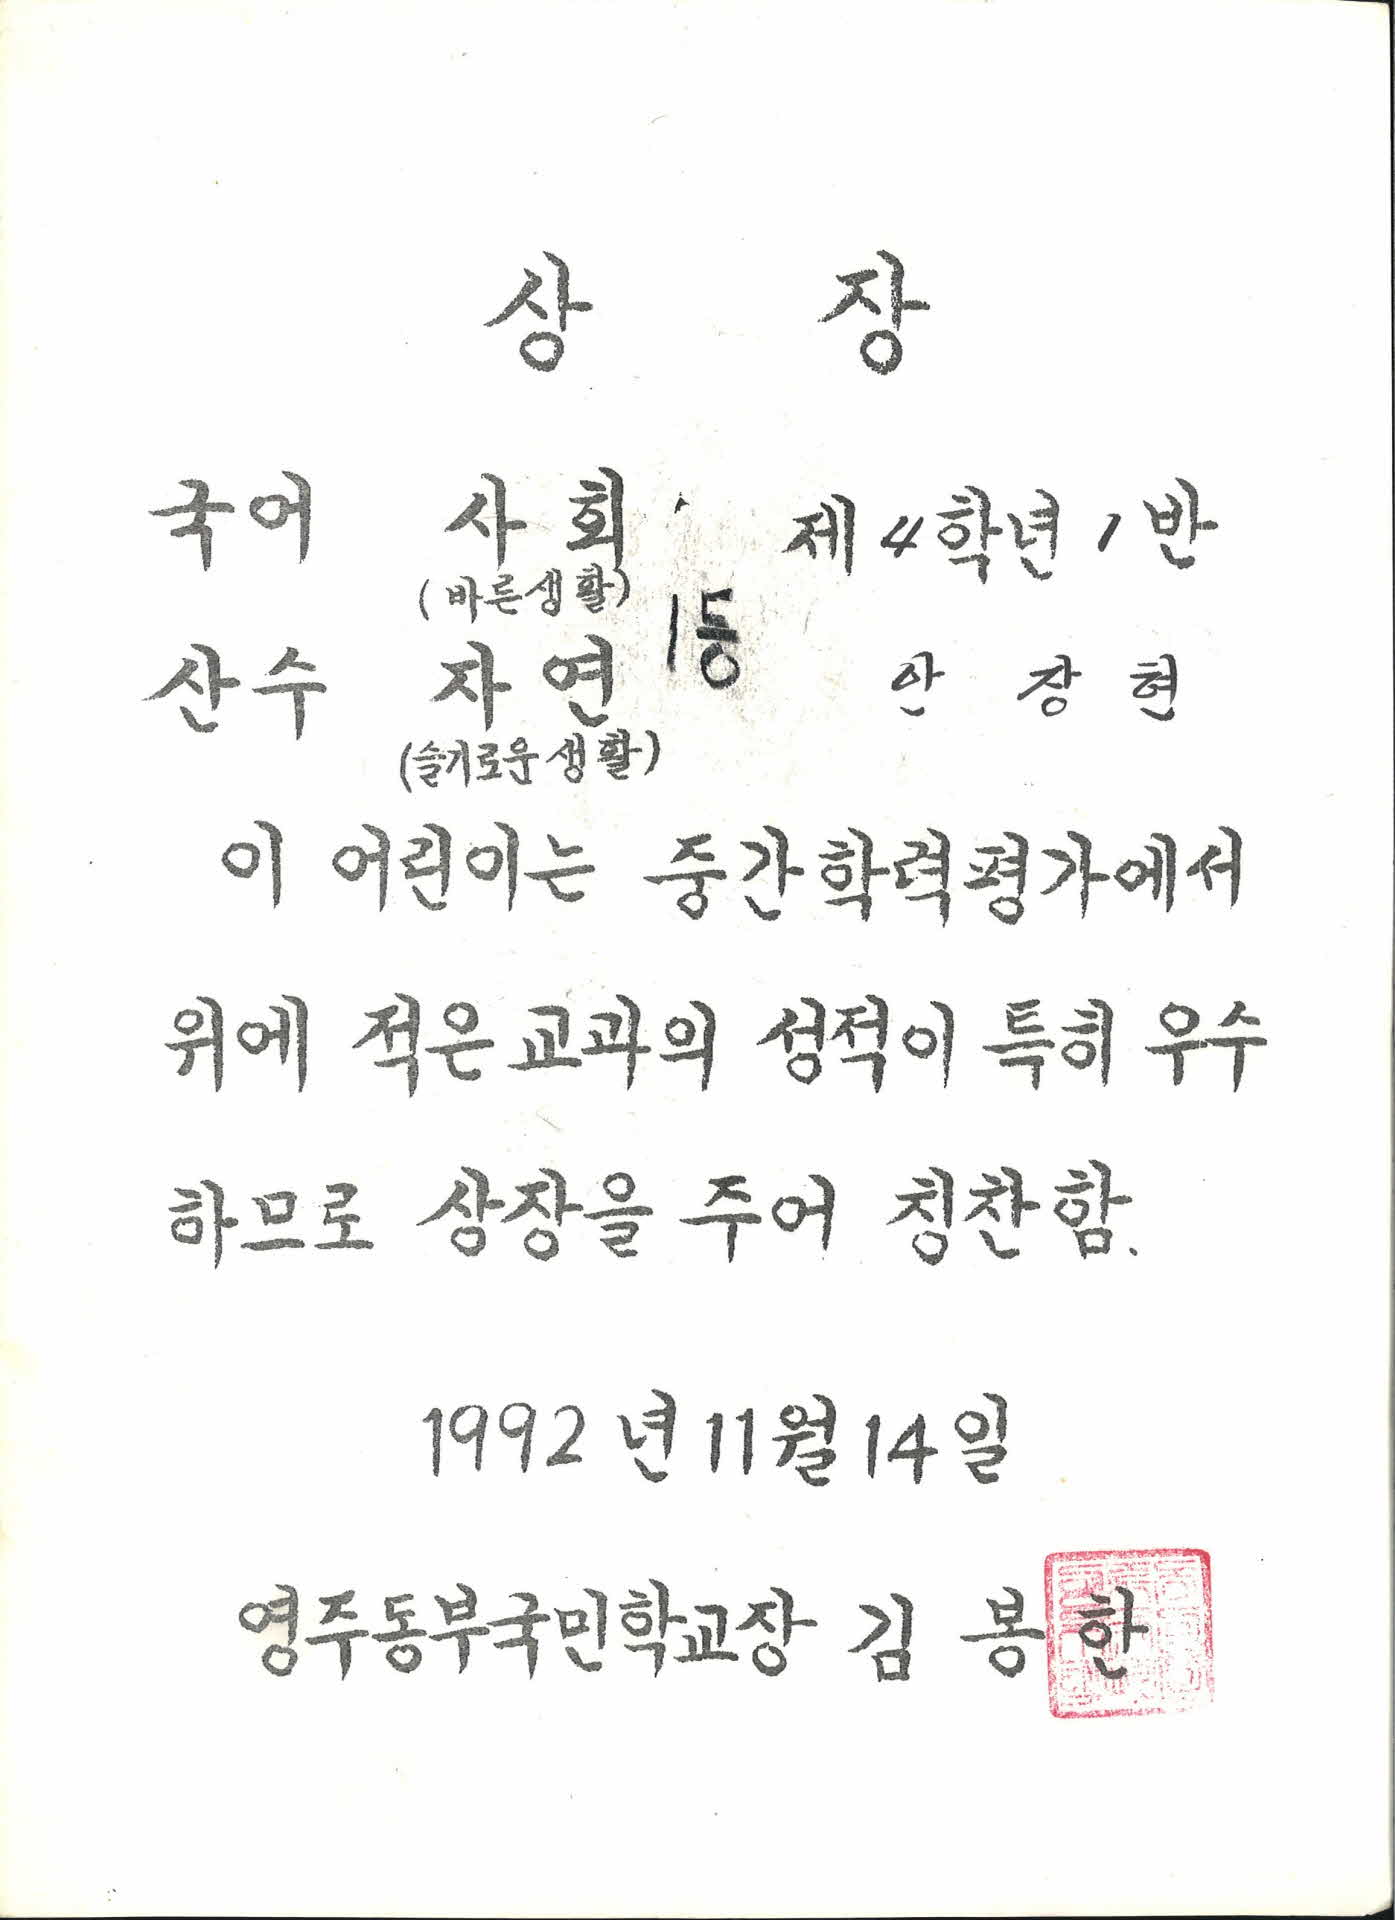 상 장
국어 사회 제4학년 1반
(바른생활)
1등
산수 자연 안장현
(슬기로운생활)
이 어린이는 중간학력평가에서
위에 적은 교과의 성적이 특히 우수
하므로 상장을 주어 칭찬함.
1992년 11월 14일
영주동부국민학교장 김봉한